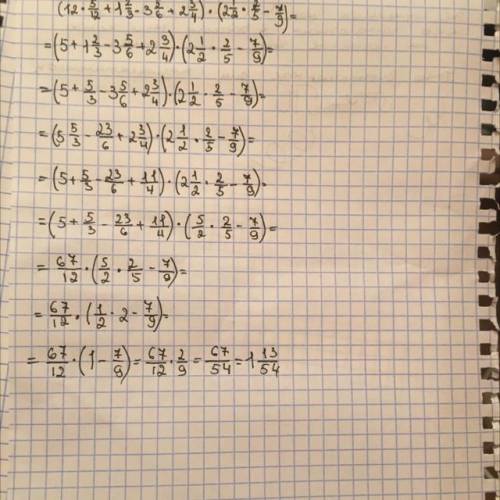 (12 · 5/12 + 1 2/3 - 3 5/6 + 2 3/4) · (2 1/2 · 2/5 - 7/9) =
= (5 + 1 2/3 - 3 5/6 + 2 3/4) · (2 1/2 · 2/5 - 7/9) =
= (5 + 5/3 - 3 5/6 + 2 3/4) · (2 1/2 · 2/5 - 7/9) =
= (5 5/3 - 23/6 + 2 3/4) · (2 1/2 · 2/5 - 7/9) =
= (5 + 5/3 - 23/6 + 11/4) · (2 1/2 · 2/5 - 7/9) =
= (5 + 5/3 - 23/6 + 11/4) · (5/2 · 2/5 - 7/9) =
= 67/12 · (5/2 · 2/5 - 7/9) =
= 67/12 · (1/2 · 2 - 7/9) =
= 67/12 · (1 - 7/9) = 67/12 · 2/9 = 67/54 = 1 13/54